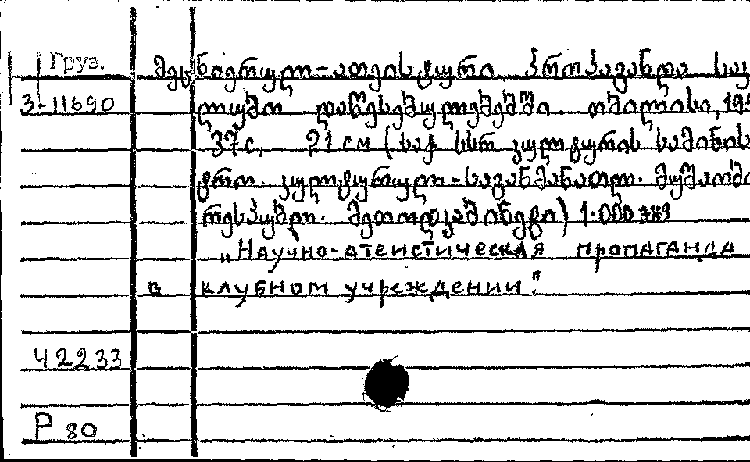 Груз. მეცნიერულ-ათეისტური პროპაგანდა საკ
3-11690 ლუბო დაწესებულებებში. თბილისი, 195
37с. 21 см (საქ. სსრ კულტურის სამინის
ტრო. კულტურულ-საგანმანათლ. მუშაობი
რესპუბლ. მეთოდკაბინეტი) 1.000 ეგზ
„Научно-атеистическая пропаганда
в клубном учреждении".
42233
Р 80